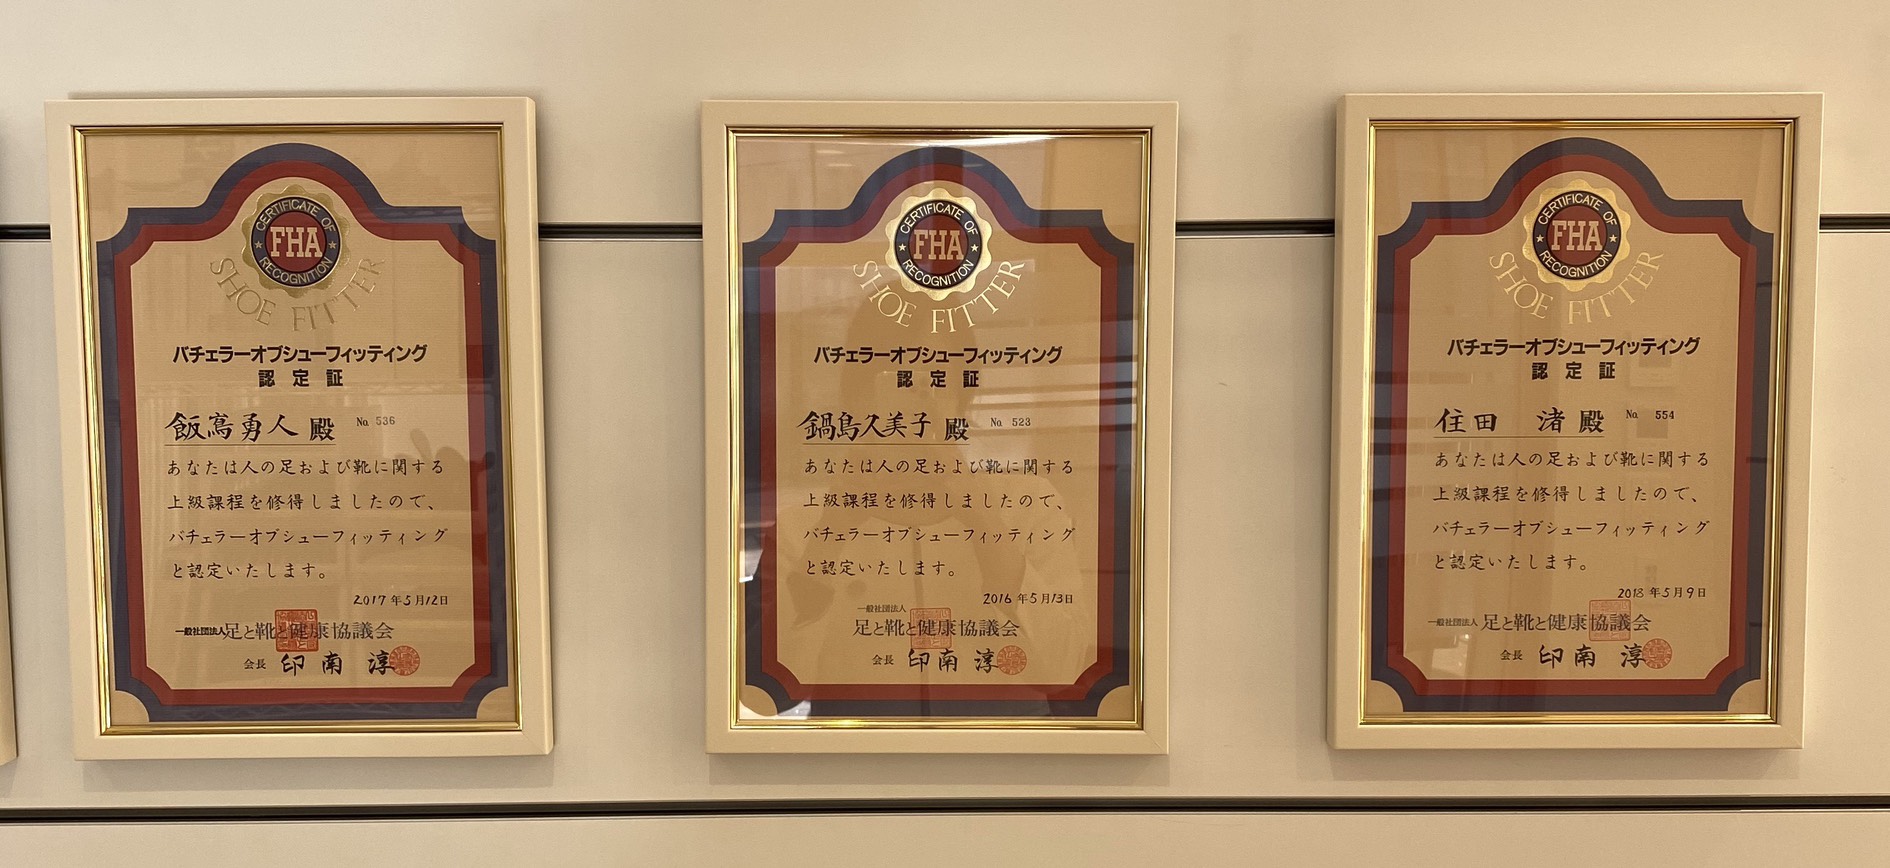 CERTIFICATE OF
FHA
RECOGNITION
SHOE FITTER
バチェラーオブシューフィッティング
認定証
飯嶌勇人 殿 No. 536
あなたは人の足および靴に関する
上級課程を修得しましたので、
バチェラーオブシューフィッティング
と認定いたします。
2017年5月12日
一般社団法人足と靴と健康協議会
会長 印南 淳
CERTIFICATE OF
FHA
RECOGNITION
SHOE FITTER
バチェラーオブシューフィッティング
認定証
鍋島久美子 殿 No. 523
あなたは人の足および靴に関する
上級課程を修得しましたので、
バチェラーオブシューフィッティング
と認定いたします。
2016年5月13日
一般社団法人
足と靴と健康協議会
会長 印南 淳
CERTIFICATE OF
FHA
RECOGNITION
SHOE FITTER
バチェラーオブシューフィッティング
認定証
住田 渚 殿 No. 554
あなたは人の足および靴に関する
上級課程を修得しましたので、
バチェラーオブシューフィッティング
と認定いたします。
2018年5月9日
一般社団法人 足と靴と健康協議会
会長 印南 淳